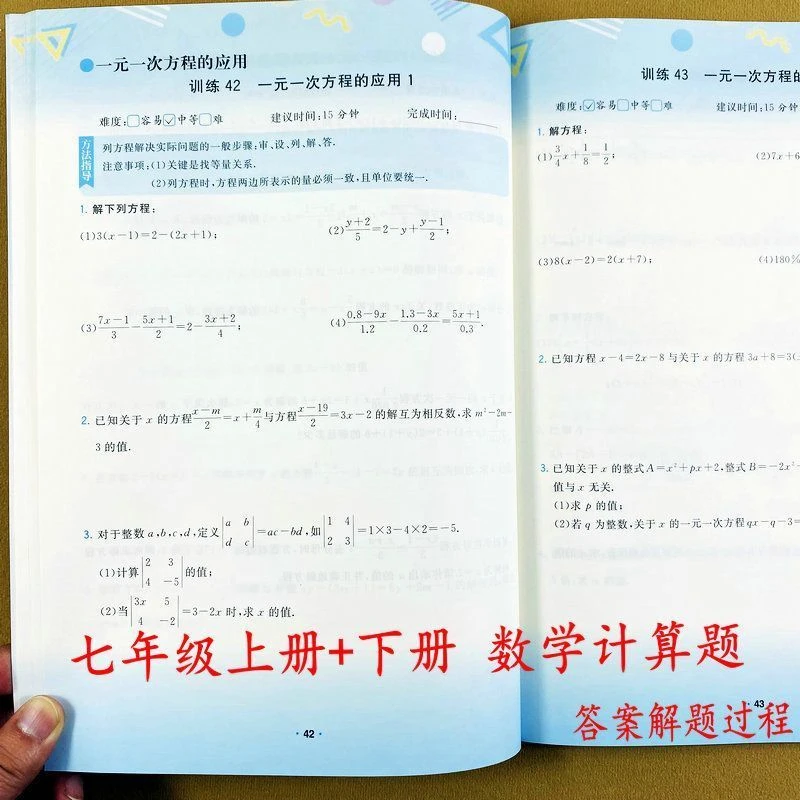 一元一次方程的应用
训练 42 一元一次方程的应用 1
难度:□容易☑中等□难 建议时间:15 分钟 完成时间:____
方法指导
列方程解决实际问题的一般步骤:审、设、列、解、答.
注意事项:(1)关键是找等量关系.
(2)列方程时,方程两边所表示的量必须一致,且单位要统一.
1. 解下列方程:
(1)3(x-1)=2-(2x+1); (2)(y+2)/5=2-y+(y-1)/2;
(3)(7x-1)/3-(5x+1)/2=2-(3x+2)/4; (4)(0.8-9x)/1.2-(1.3-3x)/0.2=(5x+1)/0.3.
2. 已知关于 x 的方程(x-m)/2=x+m/4与方程(x-19)/2=3x-2的解互为相反数,求 m²-2m-
3 的值.
3. 对于整数 a,b,c,d,定义|a b; d c|=ac-bd,如|1 4; 2 3|=1×3-4×2=-5.
(1)计算|2 3; 4 -5|的值;
(2)当|3x 5; 4 -2|=3-2x 时,求 x 的值.
· 42 ·
训练 43 一元一次方程的
难度:☑容易□中等□难 建议时间:15 分钟
1. 解方程:
(1)3/4x+1/8=1/2; (2)7x+6
(3)8(x-2)=2(x+7); (4)180%
2. 已知方程 x-4=2x-8 与关于 x 的方程 3a+8=3(
3. 已知关于 x 的整式 A=x²+px+2,整式 B=-2x²
值与 x 无关.
(1)求 p 的值;
(2)若 q 为整数,关于 x 的一元一次方程 qx-q-3=
· 43
七年级上册+下册 数学计算题
答案解题过程